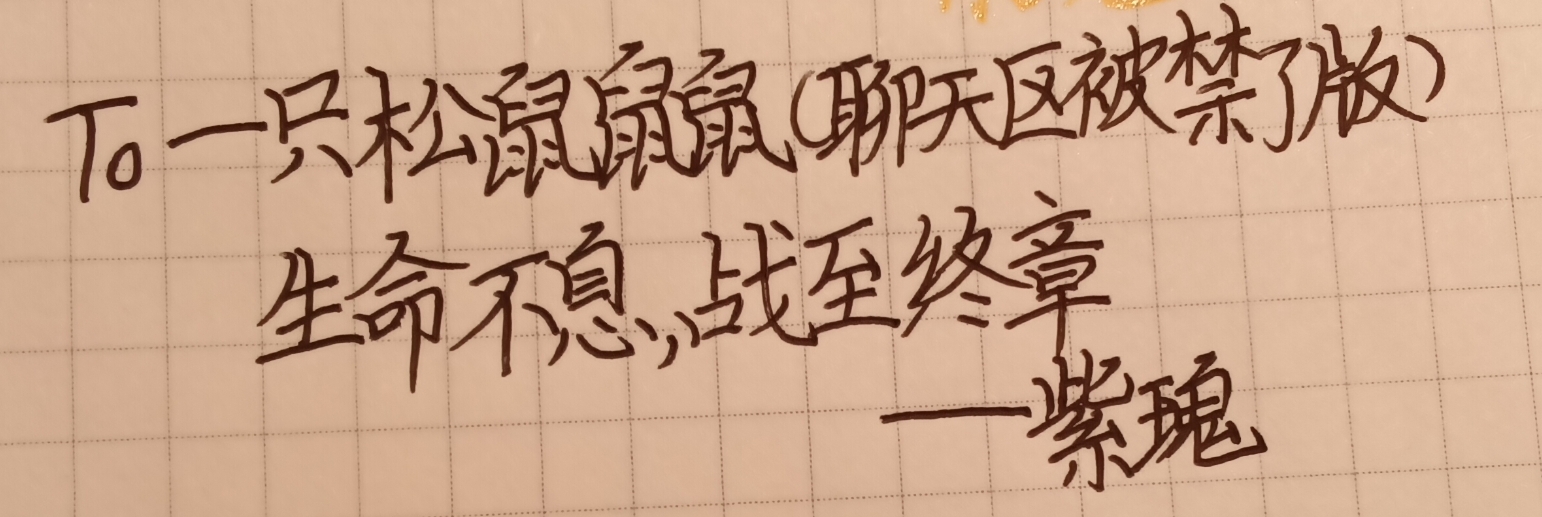 To 一只松鼠鼠鼠(聊天区被禁了版)
生命不息,战至终章
——紫瑰